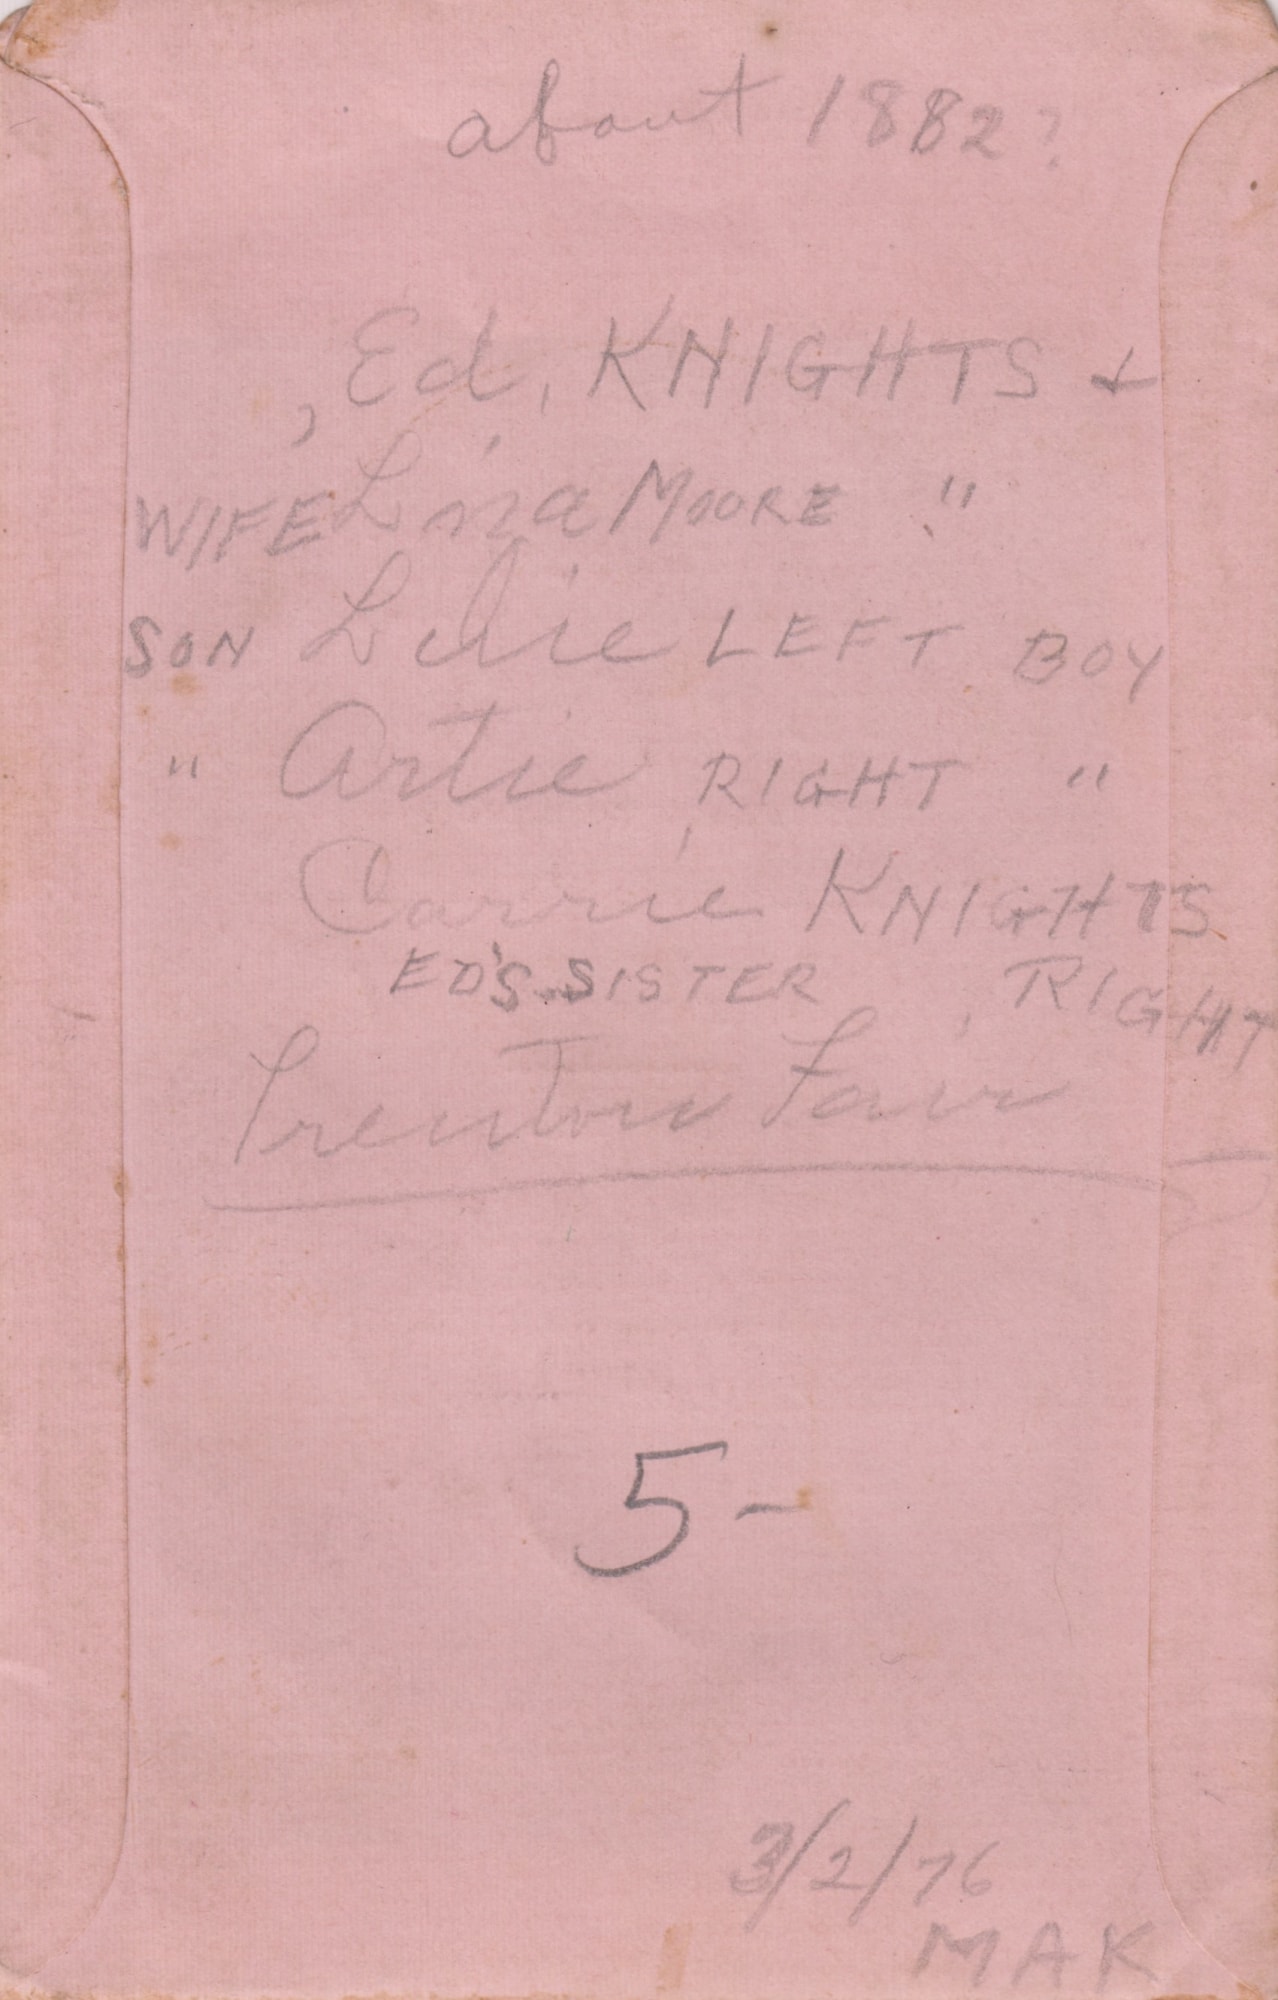 about 1882?
, Ed, KNIGHTS +
WIFE Lina MOORE "
SON LEFT BOY
" Artie RIGHT "
Carrie KNIGHTS
ED'S SISTER, RIGHT
Trenton Fair
5-
3/2/76
MAK